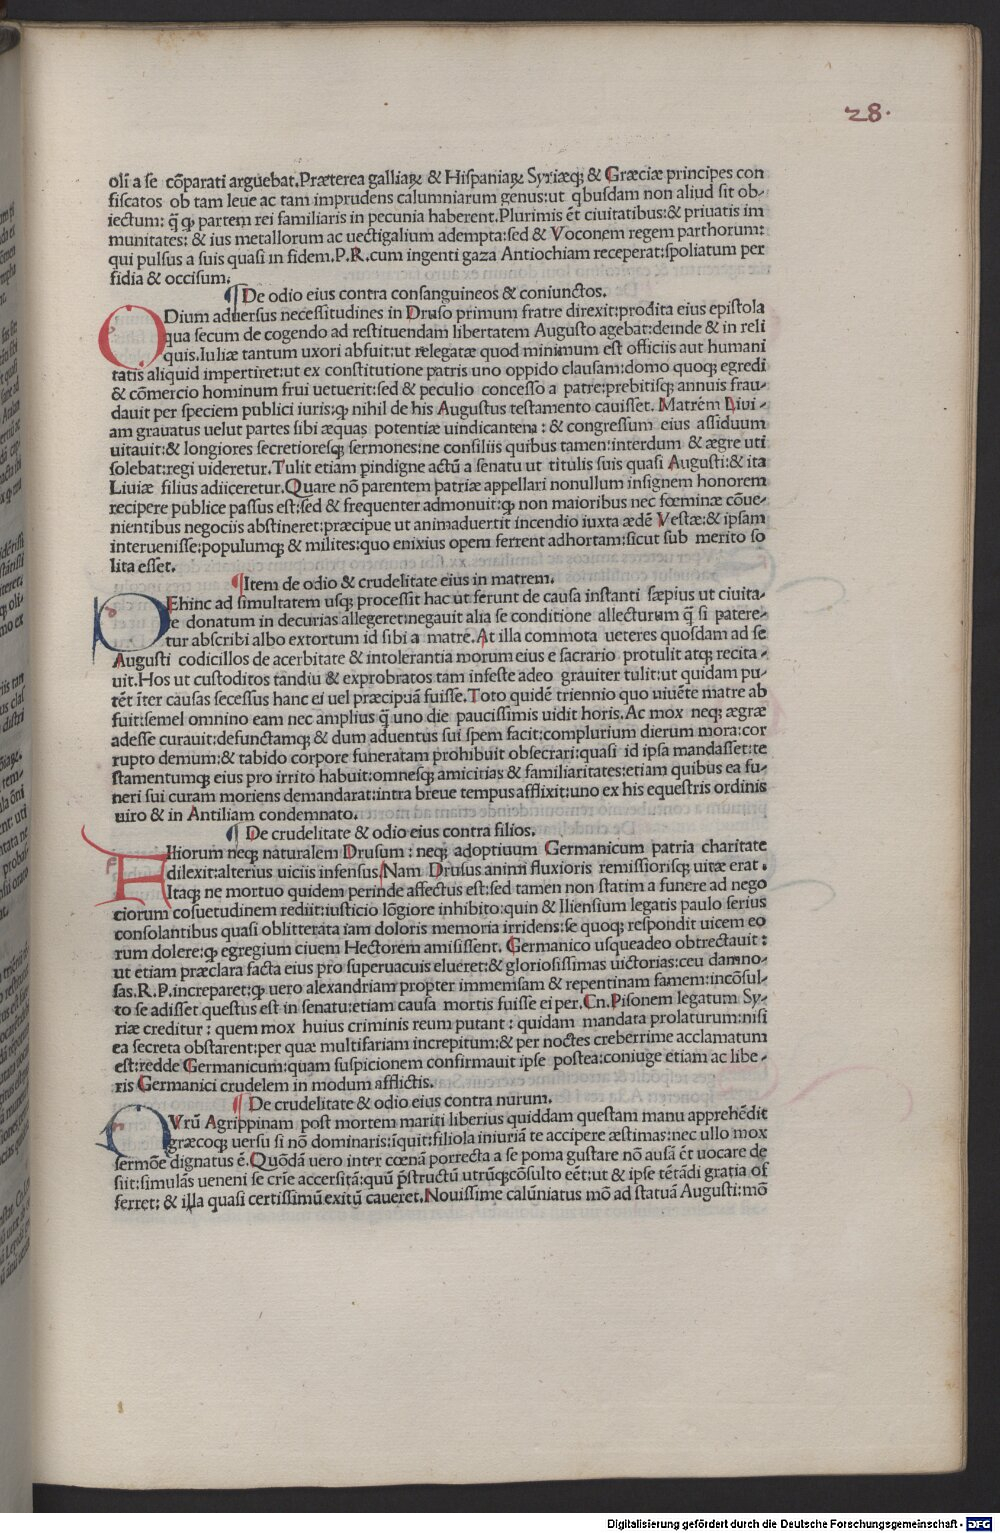 28.
olī a se cōparati arguebat.Præterea galliaꝝ & Hiſpaniaꝝ Syriæqꝫ & Græciæ principes con
fiſcatos ob tam leue ac tam imprudens calumniarum genus:ut qbuſdam non aliud ſit ob-
iectum: q̄ ꝙ partem rei familiaris in pecunia haberent.Plurimis ēt ciuitatibus:& priuatis im
munitates: & ius metallorum ac uectigalium adempta:ſed & Voconem regem parthorum:
qui pulſus a ſuis quaſi in fidem.P.R.cum ingenti gaza Antiochiam receperat:ſpoliatum per
fidia & occiſum.
¶ De odio eius contra conſanguineos & coniunctos.
ODium aduerſus neceſſitudines in Druſo primum fratre direxit:prodita eius epiſtola
qua ſecum de cogendo ad reſtituendam libertatem Auguſto agebat:deinde & in reli
quis.Iuliæ tantum uxori abfuit:ut relegatæ quod minimum eſt officiis aut humani
tatis aliquid impertiret:ut ex conſtitutione patris uno oppido clauſam:domo quoqꝫ egredi
& cōmercio hominum frui uetuerit:ſed & peculio conceſſo a patre:prebitiſqꝫ annuis frau-
dauit per ſpeciem publici iuris:ꝙ nihil de his Auguſtus teſtamento cauiſſet. Matrem Liui-
am grauatus uelut partes ſibi æquas potentiæ uindicantem: & congreſſum eius aſſiduum
uitauit:& longiores ſecretioreſqꝫ ſermones:ne conſiliis quibus tamen:interdum & ægre uti
ſolebat:regi uideretur.Tulit etiam pindigne actū a ſenatu ut titulis ſuis quaſi Auguſti:& ita
Liuiæ filius adiiceretur.Quare nō parentem patriæ appellari nonullum inſignem honorem
recipere publice paſſus eſt:ſed & frequenter admonuit:ꝙ non maioribus nec fœminæ cōue-
nientibus negociis abſtineret:præcipue ut animaduertit incendio iuxta ædē Veſtæ:& ipſam
interueniſſe:populumqꝫ & milites:quo enixius opem ferrent adhortam:ſicut ſub merito ſo
lita eſſet.
¶Item de odio & crudelitate eius in matrem.
DEhinc ad ſimultatem uſqꝫ proceſſit hac ut ferunt de cauſa inſtanti ſæpius ut ciuita-
te donatum in decurias allegeret:negauit alia ſe conditione allecturum q̄ ſi patere-
tur abſcribi albo extortum id ſibi a matre.At illa commota ueteres quoſdam ad ſe
Auguſti codicillos de acerbitate & intolerantia morum eius e ſacrario protulit atqꝫ recita-
uit.Hos ut cuſtoditos tandiu & exprobratos tam infeſte adeo grauiter tulit:ut quidam pu-
tēt īter cauſas ſeceſſus hanc ei uel præcipuā fuiſſe.Toto quidē triennio quo uiuēte matre ab
fuit:ſemel omnino eam nec amplius q̄ uno die pauciſſimis uidit horis.Ac mox neqꝫ ægræ
adeſſe curauit:defunctamqꝫ & dum aduentus ſui ſpem facit:complurium dierum mora:cor
rupto demum:& tabido corpore funeratam prohibuit obſecrari:quaſi id ipſa mandaſſet:te
ſtamentumqꝫ eius pro irrito habuit:omneſqꝫ amicitias & familiaritates:etiam quibus ea fu-
neri ſui curam moriens demandarat:intra breue tempus afflixit:uno ex his equeſtris ordinis
uiro & in Antiliam condemnato.
¶ De crudelitate & odio eius contra filios.
FIliorum neqꝫ naturalem Druſum: neqꝫ adoptiuum Germanicum patria charitate
dilexit:alterius uiciis infenſus.Nam Druſus animi fluxioris remiſſioriſqꝫ uitæ erat.
Itaqꝫ ne mortuo quidem perinde affectus eſt:ſed tamen non ſtatim a funere ad nego
ciorum coſuetudinem rediit:iuſticio lōgiore inhibito:quin & Ilienſium legatis paulo ſerius
conſolantibus quaſi oblitterata iam doloris memoria irridens:ſe quoqꝫ reſpondit uicem eo
rum dolere:ꝙ egregium ciuem Hectorem amiſiſſent. Germanico uſqueadeo obtrectauit:
ut etiam præclara facta eius pro ſuperuacuis elueret:& glorioſiſſimas uictorias:ceu damno-
ſas.R.P.increparet:ꝙ uero alexandriam propter immemſam & repentinam famem:incōſul-
to ſe adiſſet queſtus eſt in ſenatu:etiam cauſa mortis fuiſſe ei per.Cn.Piſonem legatum Sy-
riæ creditur: quem mox huius criminis reum putant: quidam mandata prolaturum:niſi
ea ſecreta obſtarent:per quæ multifariam increpitum:& per noctes creberrime acclamatum
eſt:redde Germanicum:quam ſuſpicionem confirmauit ipſe poſtea:coniuge etiam ac libe-
ris Germanici crudelem in modum afflictis.
¶ De crudelitate & odio eius contra nurum.
NVrū Agrippinam poſt mortem mariti liberius quiddam queſtam manu apprehēdit
græcoqꝫ uerſu ſi nō dominaris:īquit:filiola iniuriā te accipere æſtimas:nec ullo mox
ſermōe dignatus ē.Quōdā uero inter cœnā porrecta a ſe poma guſtare nō auſā ēt uocare de
ſiit:ſimulās ueneni ſe crīe accerſitā:quū pſtructū utrūqꝫcōſulto eēt:ut & ipſe tētādi gratia of
ferret: & illa quaſi certiſſimū exitū caueret.Nouiſſime calūniatus mō ad ſtatuā Auguſti:mō
Digitalisierung gefördert durch die Deutsche Forschungsgemeinschaft - DFG